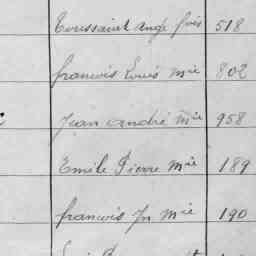 Toussaint Ange fois 518
francois Louis Mie 802
Jean André Mie 958
Emile Pierre Mie 189
francois Jn Mie 190